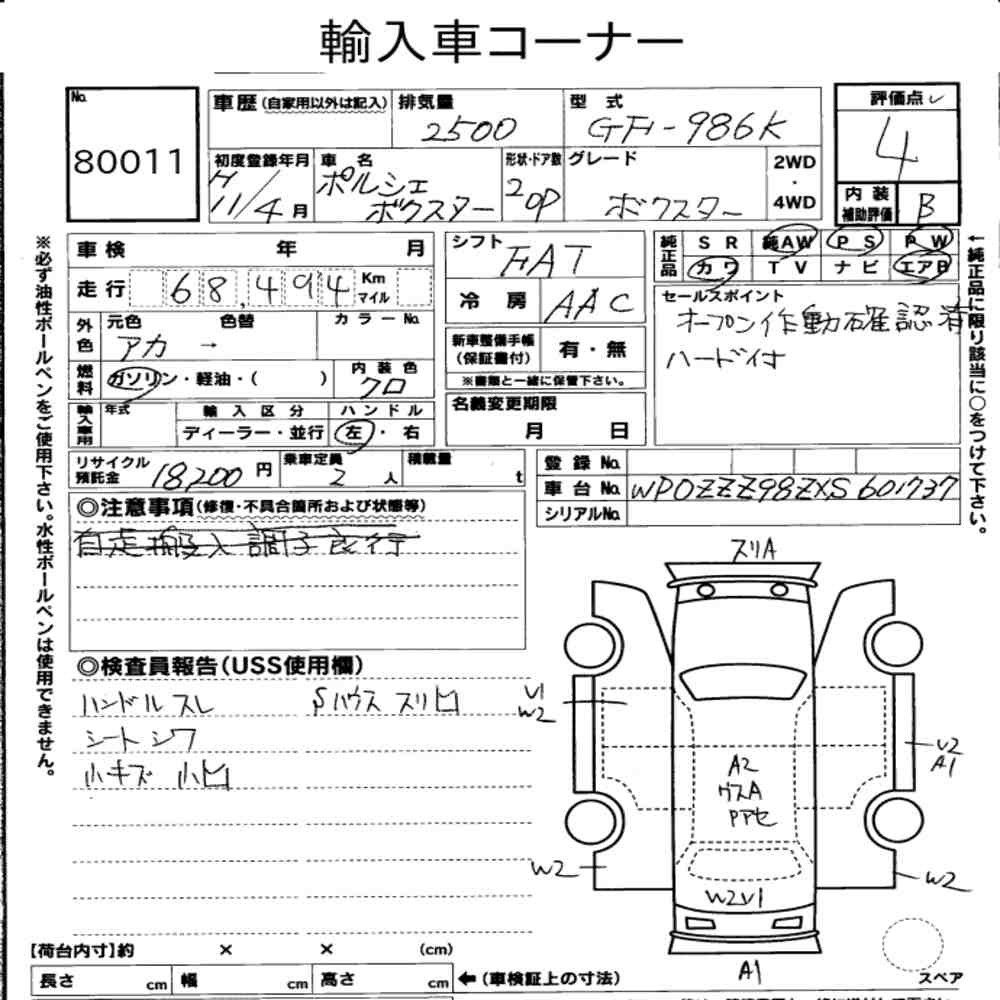 輸入車コーナー
No.
80011
車歴 (自家用以外は記入)
排気量
2500
型 式
GF-986K
評価点
4
初度登録年月
H 11/4 月
車 名
ポルシェ
ボクスター
形状・ドア数
2 OP
グレード
ボクスター
2WD
・
4WD
内 装
補助評価
B
※必ず油性ボールペンをご使用下さい。水性ボールペンは使用できません。
車 検 年 月
走 行 68,494 Km マイル
外色
元色 色替 カラーNo.
アカ →
燃料
ガソリン・軽油・( )
内 装 色
クロ
輸入車用
年式
輸 入 区 分
ディーラー・並行
ハ ン ド ル
左 ・ 右
シフト
FAT
冷 房
AAC
新車整備手帳
(保証書付)
有 ・ 無
※書類と一緒に保管下さい。
名義変更期限
月 日
純正品
S R 純AW P S P W
カワ T V ナ ビ エアB
セールスポイント
オープン作動確認済
ハード付
←純正品に限り該当に○をつけて下さい。
リサイクル
預託金
18200 円
乗車定員
2 人
積載量
t
登 録 No.
車 台 No. WP0ZZZ98ZXS601737
シリアルNo.
◎注意事項(修復・不具合箇所および状態等)
自走搬入 調子良行
◎検査員報告(USS使用欄)
ハンドルスレ
Sハウス スリ凹
シートシワ
小キズ 小凹
スリA
U1
W2
U2
A1
A2
ウスA
Pアセ
W2
W2
W2U1
A1
スペア
【荷台内寸】約 × × (cm)
長さ cm 幅 cm 高さ cm ←(車検証上の寸法)